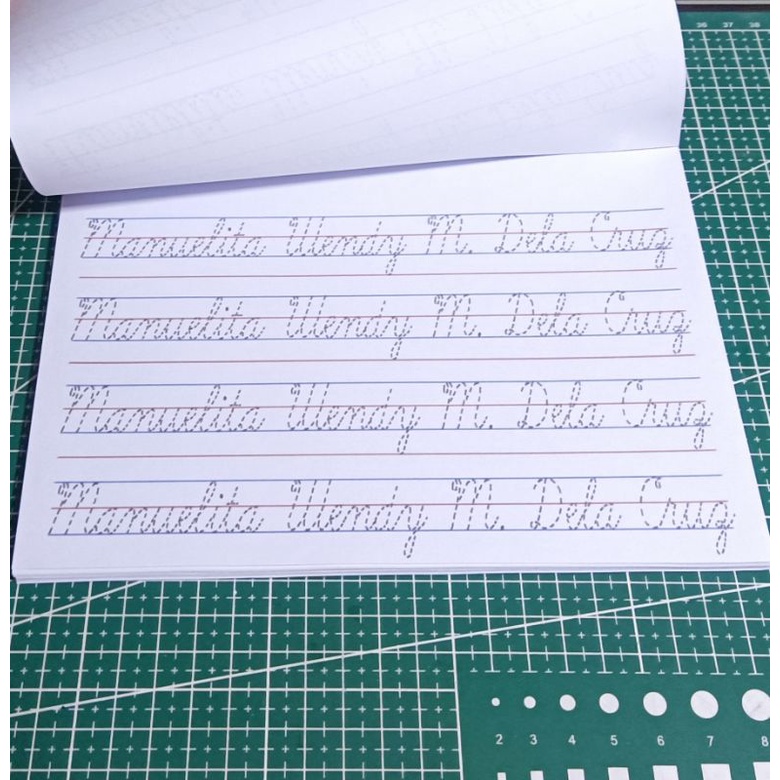 36 37 38
Manuelita Wendy M. Dela Cruz
Manuelita Wendy M. Dela Cruz
Manuelita Wendy M. Dela Cruz
Manuelita Wendy M. Dela Cruz
2 3 4 5 6 7 8